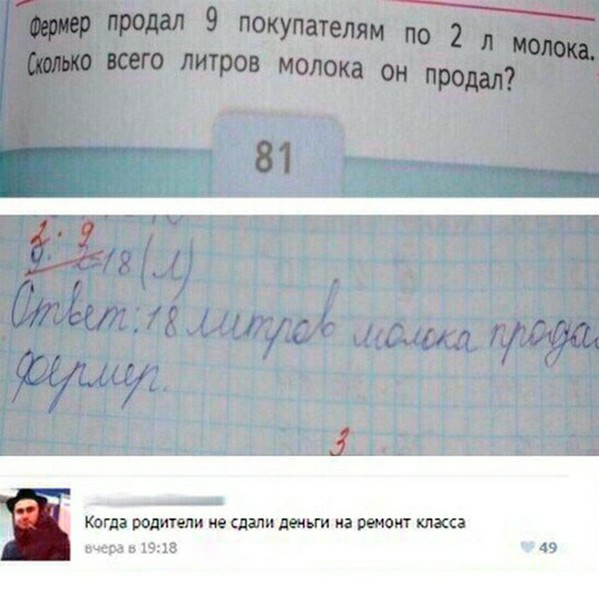 Фермер продал 9 покупателям по 2 л молока.
Сколько всего литров молока он продал?
81
2 · 9
9 · 2=18 (л)
Ответ: 18 литров молока прода
фермер.
3
Когда родители не сдали деньги на ремонт класса
вчера в 19:18
49